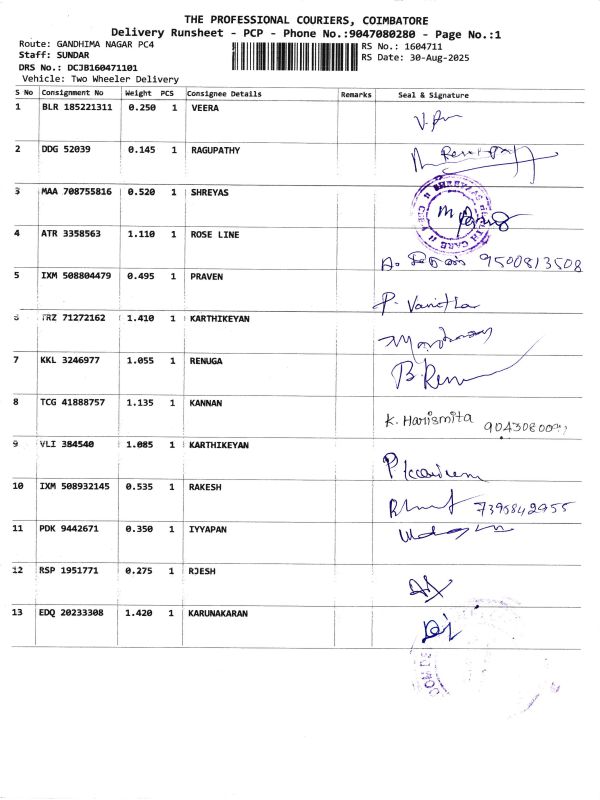 THE PROFESSIONAL COURIERS, COIMBATORE
Delivery Runsheet - PCP - Phone No.:9047080280 - Page No.:1
Route: GANDHIMA NAGAR PC4 RS No.: 1604711
Staff: SUNDAR RS Date: 30-Aug-2025
DRS No.: DCJB160471101
Vehicle: Two Wheeler Delivery
S No Consignment No Weight PCS Consignee Details Remarks Seal & Signature
1 BLR 185221311 0.250 1 VEERA
2 DDG 52039 0.145 1 RAGUPATHY
3 MAA 708755816 0.520 1 SHREYAS
4 ATR 3358563 1.110 1 ROSE LINE
9500813508
5 IXM 508804479 0.495 1 PRAVEN
P. Vanitha
6 TRZ 71272162 1.410 1 KARTHIKEYAN
7 KKL 3246977 1.055 1 RENUGA
8 TCG 41888757 1.135 1 KANNAN
K. Harismita
9 VLI 384540 1.085 1 KARTHIKEYAN
10 IXM 508932145 0.535 1 RAKESH
7395842955
11 PDK 9442671 0.350 1 IYYAPAN
12 RSP 1951771 0.275 1 RJESH
13 EDQ 20233308 1.420 1 KARUNAKARAN